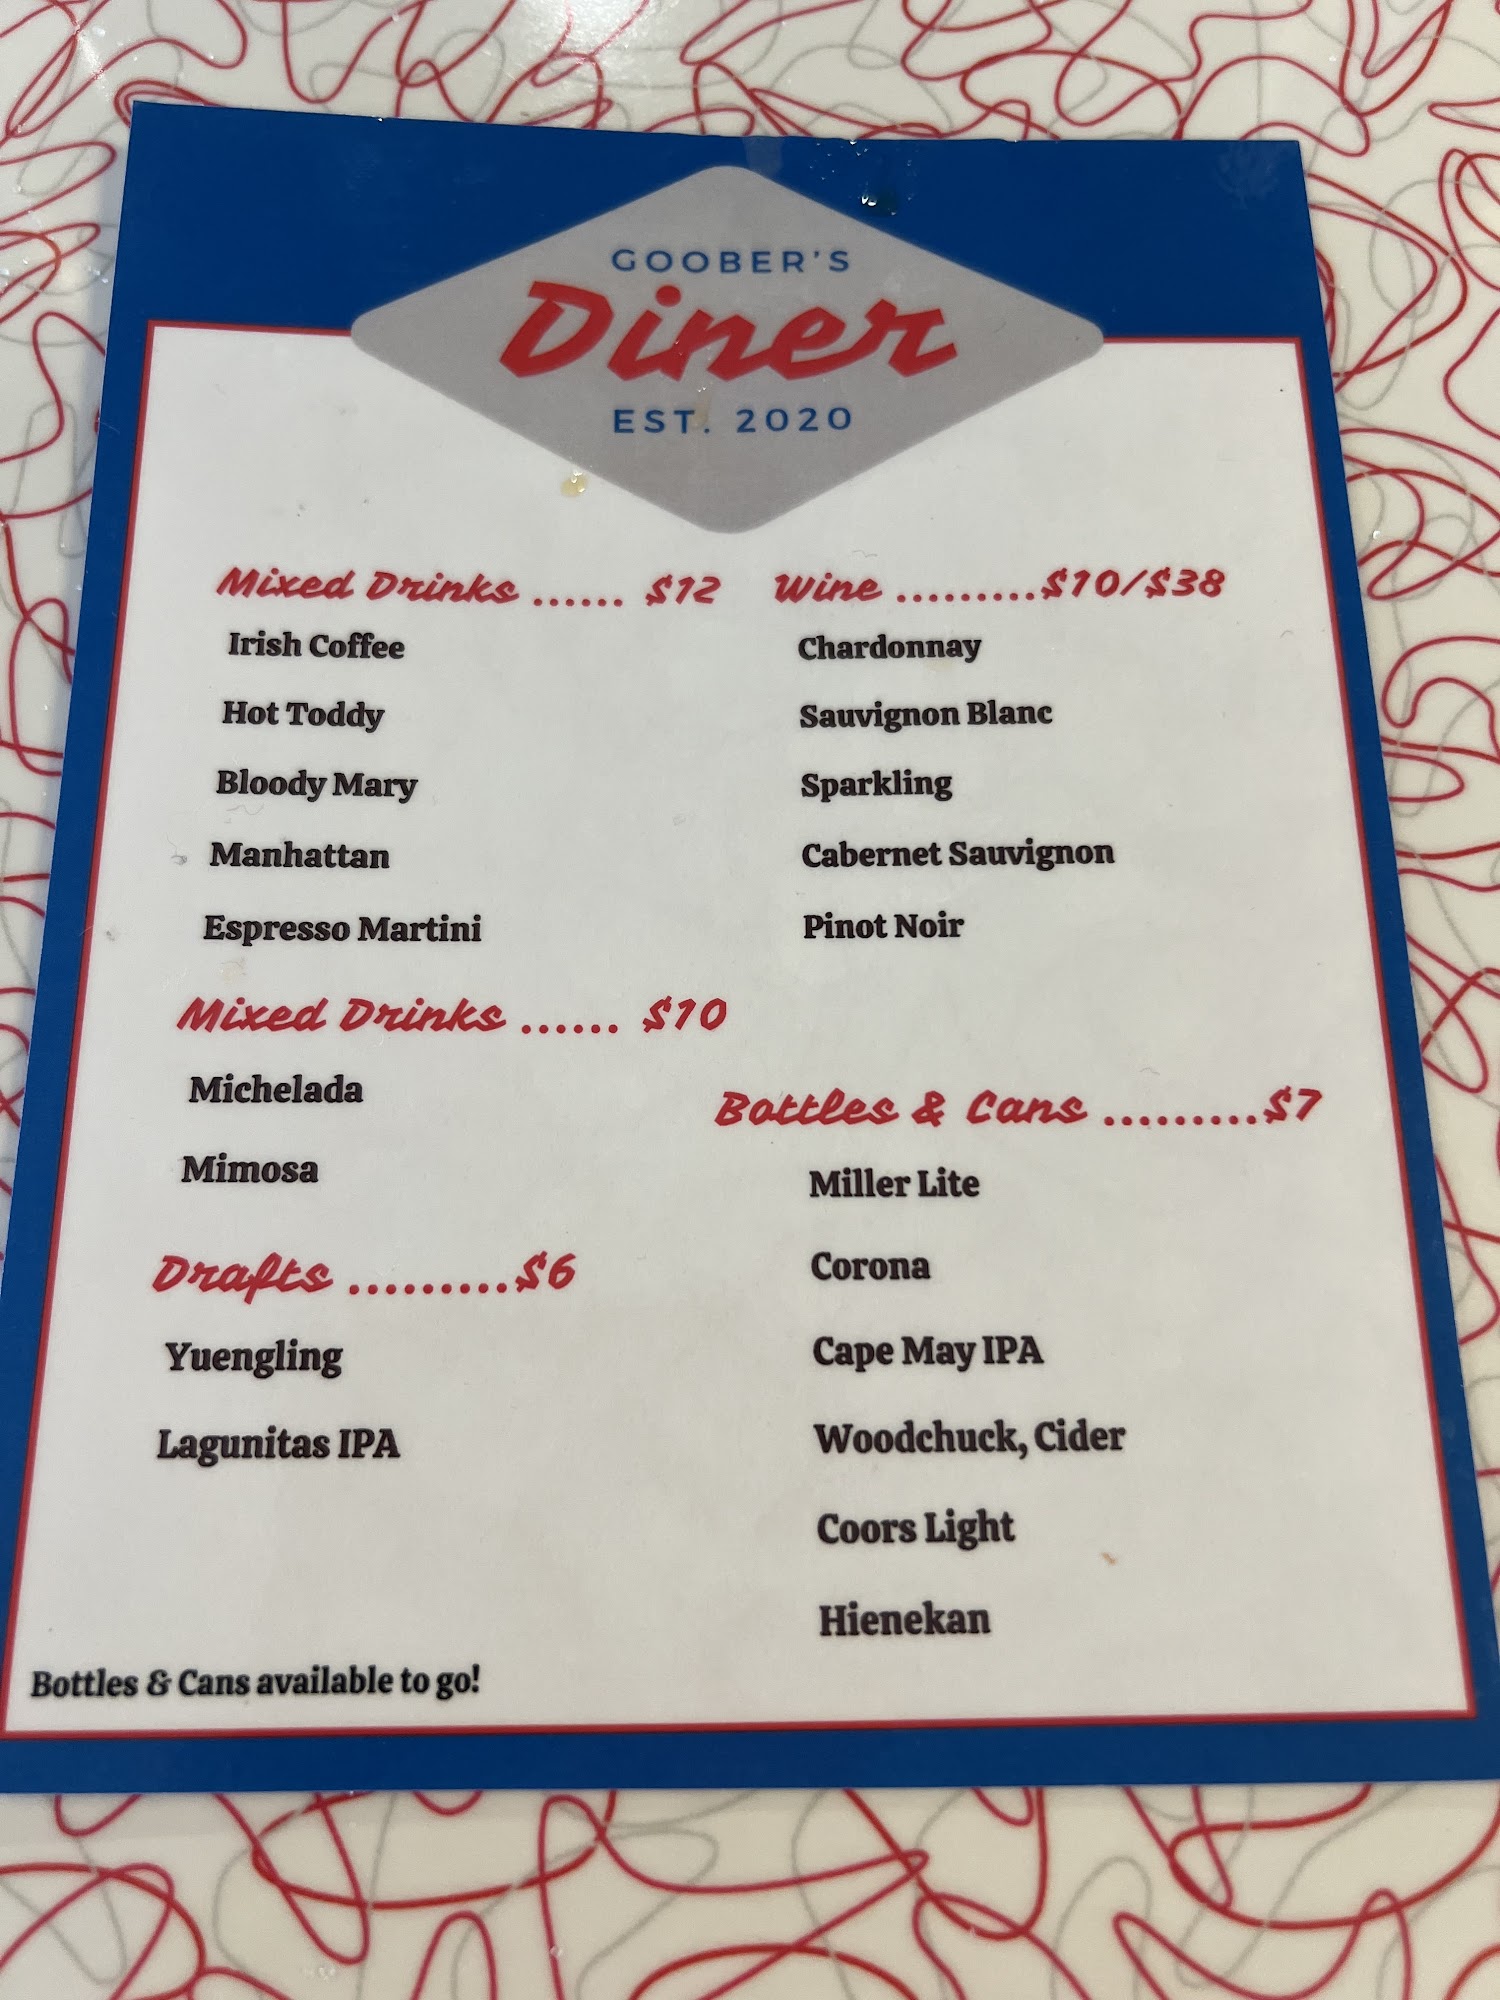 GOOBER'S
Diner
EST. 2020
Mixed Drinks ...... $12
Irish Coffee
Hot Toddy
Bloody Mary
Manhattan
Espresso Martini
Mixed Drinks ...... $10
Michelada
Mimosa
Drafts .........$6
Yuengling
Lagunitas IPA
Wine .........$10/$38
Chardonnay
Sauvignon Blanc
Sparkling
Cabernet Sauvignon
Pinot Noir
Bottles & Cans .........$7
Miller Lite
Corona
Cape May IPA
Woodchuck, Cider
Coors Light
Hienekan
Bottles & Cans available to go!